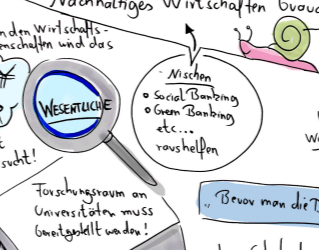 Nachhaltiges Wirtschaften brauc
den Wirtschafts-
enschaften wird das
WESENTLICHE
sucht!
Nischen
Social Banking
Green Banking
etc...
raushelfen
Forschungsraum an
Universitäten muss
bereitgestellt werden!
„Bevor man die B